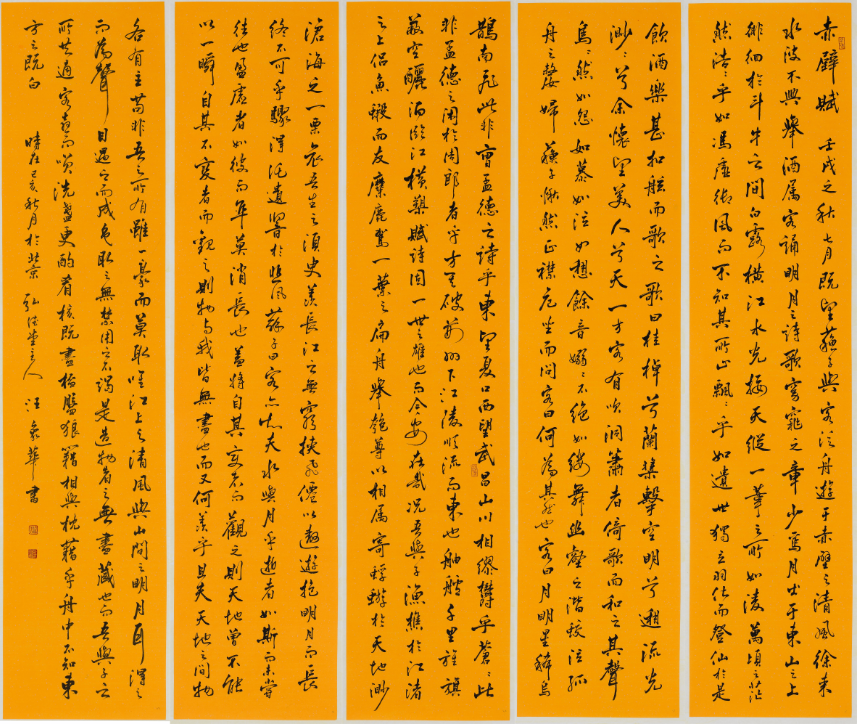 赤壁賦 壬戌之秋七月既望蘇子與客泛舟遊于赤壁之清風徐來
水波不興舉酒属客誦明月之詩歌窈窕之章少焉月出于東山之上
徘徊於斗牛之間白露橫江水光接天縱一葦之所如凌萬頃之茫
然浩浩乎如馮虛御風而不知其所止飄飄乎如遺世獨立羽化而登仙於是
飲酒樂甚扣舷而歌之歌曰桂棹兮蘭槳擊空明兮遡流光
渺渺兮余懷望美人兮天一方客有吹洞簫者倚歌而和之其聲
嗚嗚然如怨如慕如泣如想餘音嫋嫋不絕如縷舞幽壑之潛蛟泣孤
舟之嫠婦蘇子愀然正襟危坐而問客曰何為其然也客曰月明星稀烏
鵲南飛此非曹孟德之詩乎東望夏口西望武昌山川相繆鬱乎蒼蒼此
非孟德之困於周郎者乎方其破荊州下江陵順流而東也舳艫千里旌旗
蔽空釃酒臨江橫槊賦詩固一世之雄也而今安在哉況吾與子漁樵於江渚
之上侶魚蝦而友麋鹿駕一葉之扁舟舉匏尊以相属寄蜉蝣於天地渺
滄海之一粟哀吾生之須臾羨長江之無窮挾飛僊以遨遊抱明月而長
終不可乎驟得託遺響於悲風蘇子曰客亦知夫水與月乎逝者如斯而未嘗
往也盈虛者如彼而卒莫消長也蓋將自其變者而觀之則天地曾不能
以一瞬自其不變者而觀之則物與我皆無盡也而又何羨乎且夫天地之間物
各有主苟非吾之所有雖一毫而莫取唯江上之清風與山間之明月耳得之
而為聲目遇之而成色取之無禁用之不竭是造物者之無盡藏也而吾與子之
所共適客喜而笑洗盞更酌肴核既盡杯盤狼籍相與枕藉乎舟中不知東
方之既白 時在己亥秋月於北京 弘德堂主人 汪家華書